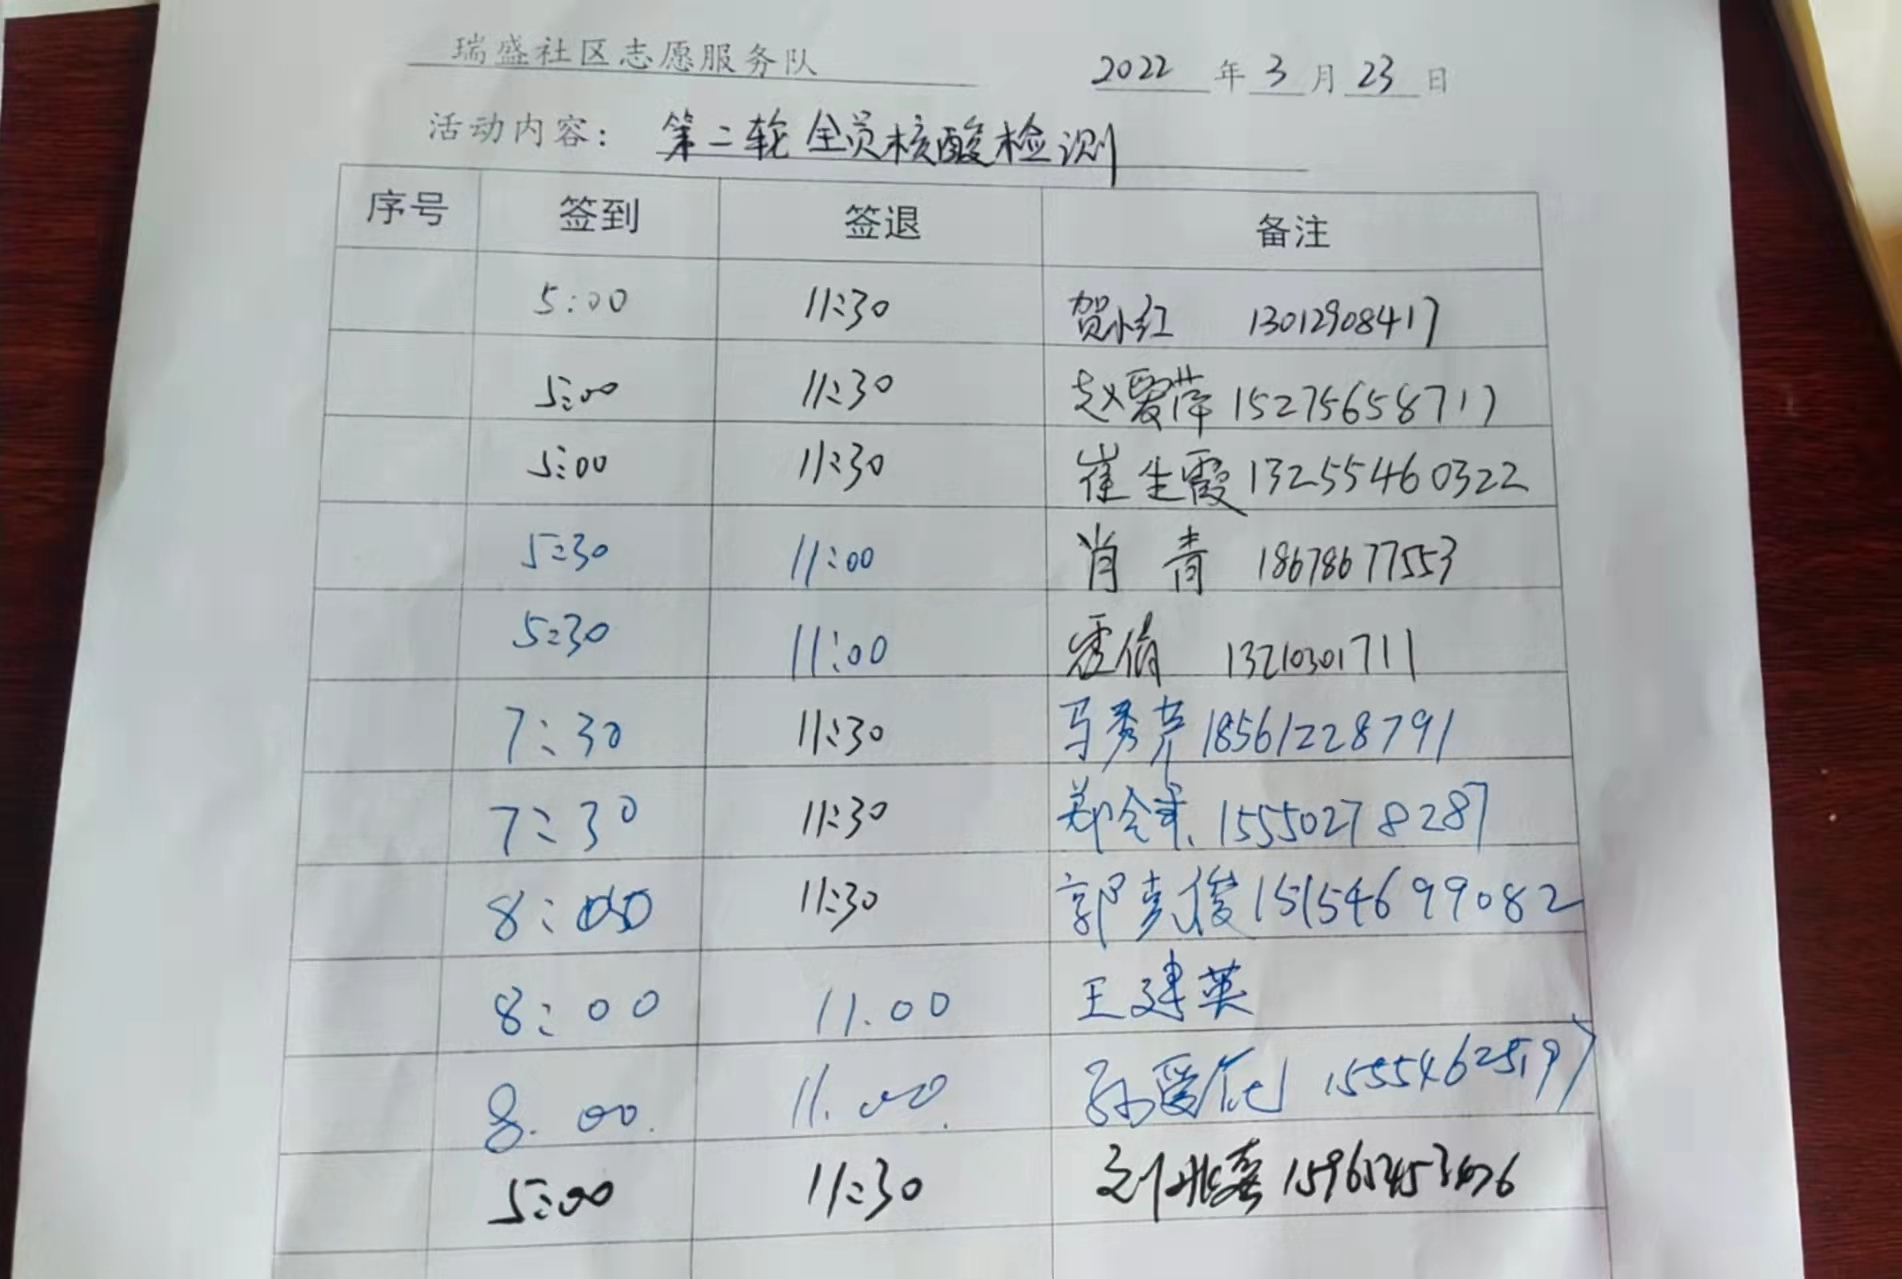 瑞盛社区志愿服务队 2022 年 3 月 23 日
活动内容: 第二轮全员核酸检测
序号 签到 签退 备注
5:00 11:30 贺小红 13012908417
5:00 11:30 赵爱萍 15275658717
5:00 11:30 崔生霞 13255460322
5:30 11:00 肖青 18678677553
5:30 11:00 13210301711
7:30 11:30 马秀芹 18561228791
7:30 11:30 15550278287
8:00 11:30 郭克俊 15154699082
8:00 11.00 王建英
8.00. 11.00. 孙爱花 15554625197
5:00 11:30